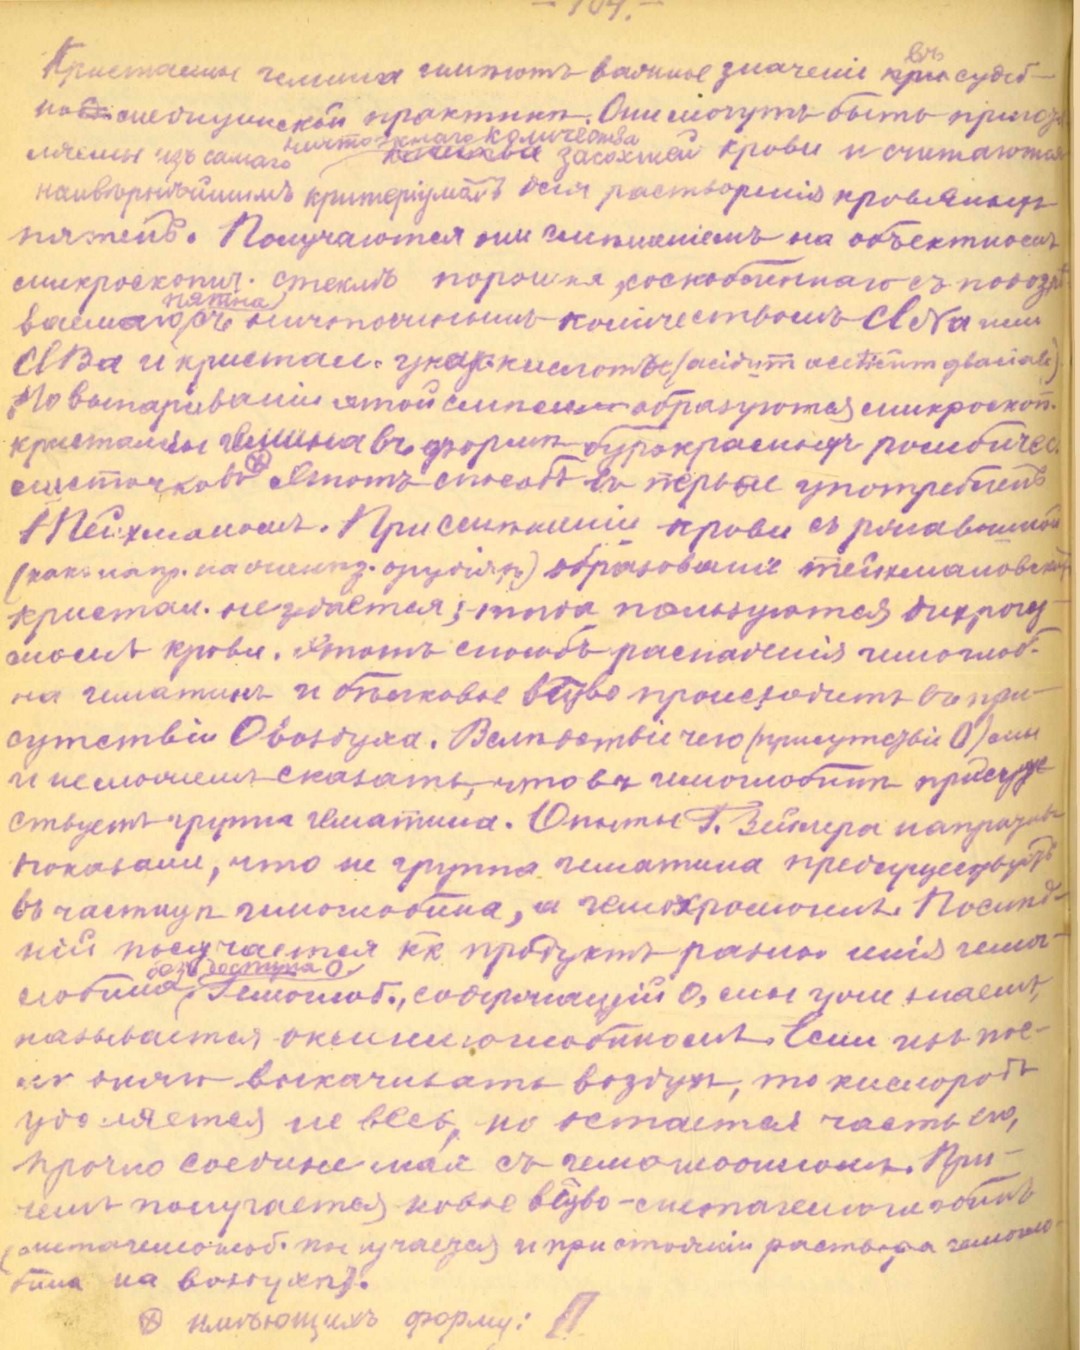 – 104. –
Кристаллы гемина имѣютъ важное значеніе въ судеб-
но медицинской практикѣ. Они могутъ быть приго-
изъ самаго ничтожнаго количества засохшей крови и считаются
наивѣрнѣйшимъ критеріумомъ для кровяныхъ
пятенъ. Получаются они на объектномъ
микроскопич. стеклѣ порошка, соскобленнаго съ подозрѣ-
ваемаго пятна съ ничтожнымъ количествомъ ClNa или
и кристал. уксус. кислоты (acidum aceticum glaciale).
По выпариваніи этой смѣси образуются микроскоп.
кристаллы гемина въ формѣ бурокрасныхъ ромбичес.
листочковъ ⊗ Этотъ способъ въ первые употребленъ
Тейхманомъ. При смѣшеніи крови съ ржавчиной
(какъ напр. на орудіяхъ) образованіе тейхмановской
кристал. не удается; тогда пользуются
крови. Этотъ способъ распаденія гемоглоб.
на гематинъ и бѣлковое в-ство происходитъ въ при-
сутствіи O воздуха. Вслѣдствіи чего (присутствіи O) мы
и не можемъ сказать, что въ гемоглобинѣ присут-
ствуетъ группа гематина. Опыты Г. Зейлера напротивъ
показали, что не группа гематина предсуществуетъ
въ частицѣ гемоглобина, а гемохромогенъ. Послѣд-
ній получается кк продуктъ гемо-
глобина безъ доступа O. Гемоглоб., содержащій O, мы уже знаемъ,
называется оксигемоглобиномъ. Если изъ
выкачивать воздухъ, то кислородъ
удаляется не весь, но остается часть его,
прочно соединенная съ гемоглобиномъ. При-
чемъ получается новое в-ство – метагемоглобинъ
(метагемоглоб. получается и при стояніи раствора гемогло-
бина на воздухѣ).
⊗ имѣющихъ форму: